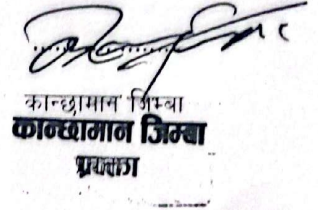 कान्छामान जिम्बा
कान्छामान जिम्बा
प्रवक्ता